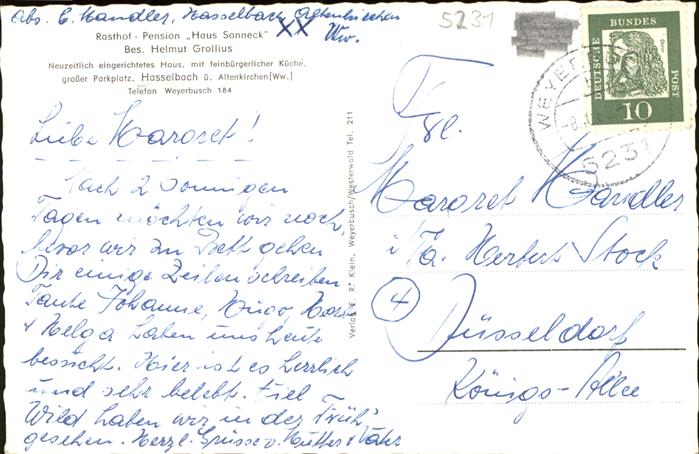 Abs. C. Handler, Hasselbach Altenkirchen
XX Ww.
5231
Rasthof - Pension „Haus Sonneck"
Bes. Helmut Grollius
Neuzeitlich eingerichtetes Haus, mit feinbürgerlicher Küche,
großer Parkplatz, Hasselbach ü. Altenkirchen(Ww.)
Telefon Weyerbusch 184
Liebe Margret!
Nach 2 sonnigen
Tagen möchten wir noch,
bevor wir zu Bett gehen
Dir einige Zeilen schreiben.
Tante Johanne, Hugo,
+ Helga haben uns heute
besucht. Hier ist es herrlich
und sehr belebt. Viel
Wild haben wir in der Früh'
gesehen. Herzl. Grüsse v. Mutter + Vater
Verlag E. R. Klein, Weyerbusch/Westerwald Tel. 211
DEUTSCHE BUNDES POST
10
WEYERBUSCH
5231
Frl.
Margret Handler
i/Fa. Herbert Stock
4 Düsseldorf
Königs-Allee